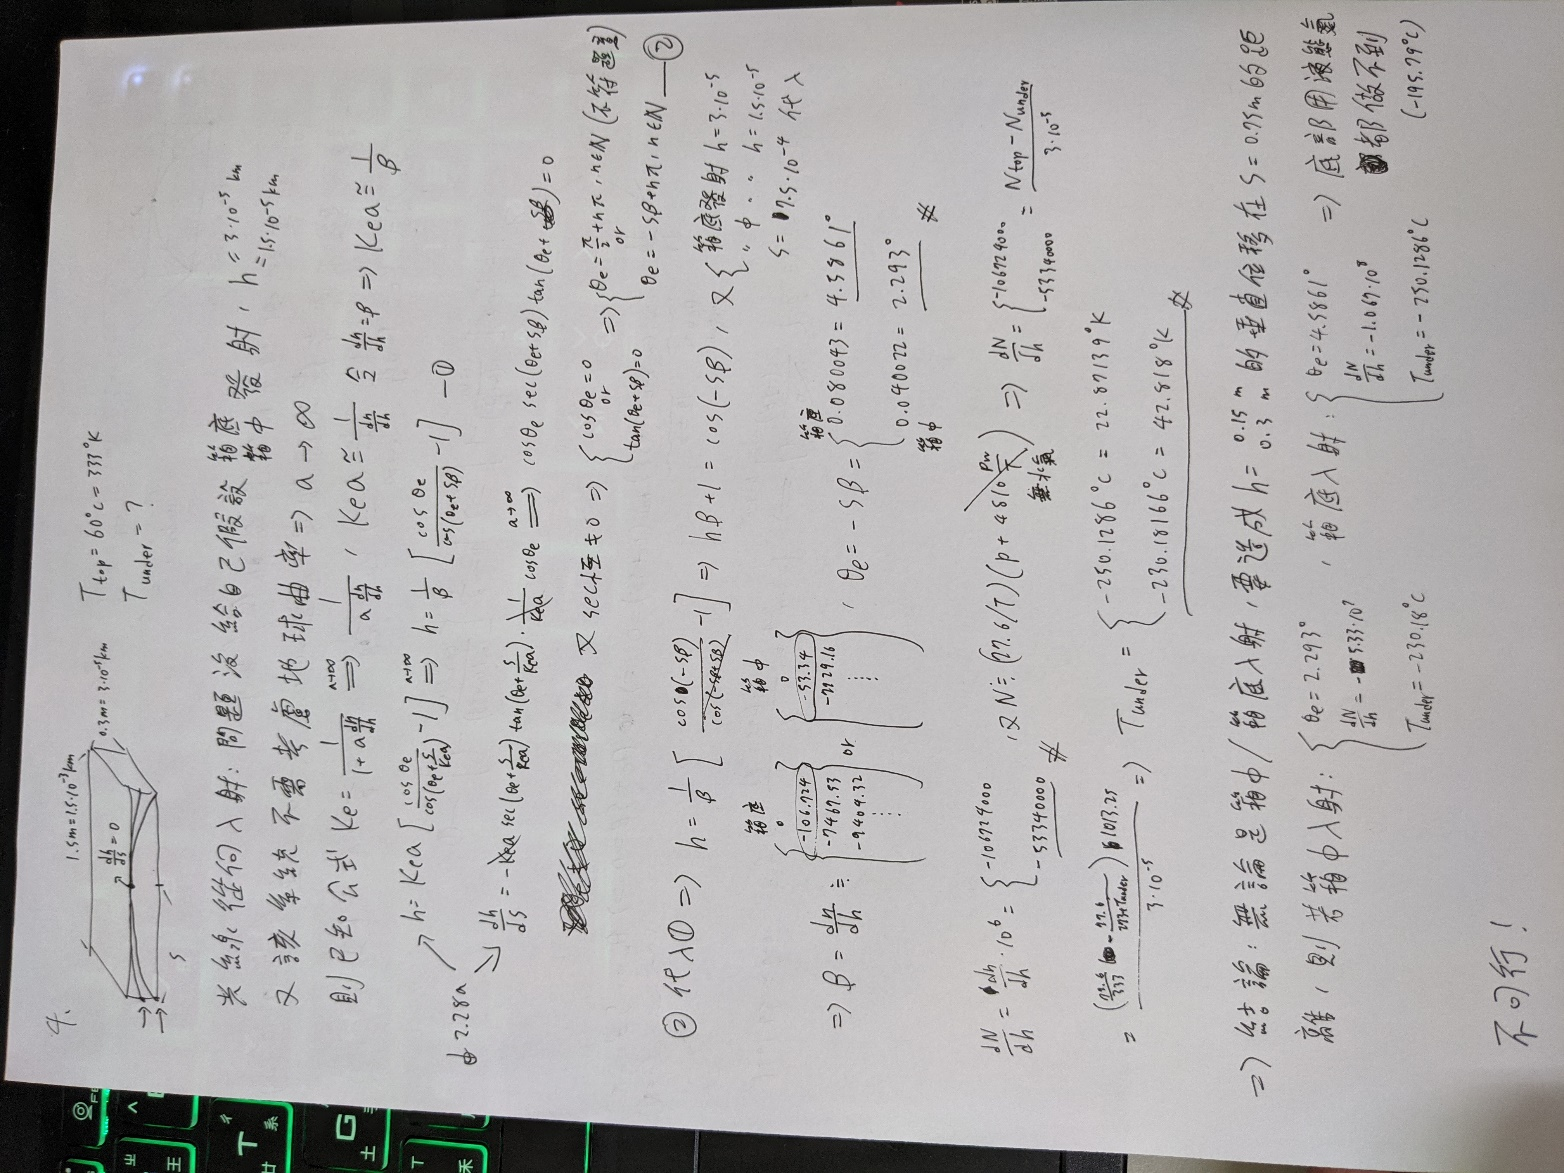 4.
1.5m=1.5·10⁻³km
0.3m=3·10⁻⁵km
dh/ds=0
S
T top = 60°C = 333°K
T under = ?
光線從何入射: 問題沒給自己假設 箱底 箱中 發射, h = 3·10⁻⁵ km = 1.5·10⁻⁵ km
又該系統不需考慮地球曲率 ⇒ a → ∞
則已知公式 Ke = 1/(1+a dn/dh) a→∞ ⇒ 1/(a dn/dh), Kea ≅ 1/(dn/dh) 令 dn/dh = β ⇒ Kea ≅ 1/β
h = Kea [cosθe/cos(θe+S/Kea) −1] a→∞ ⇒ h = 1/β [cosθe/cos(θe+Sβ) −1] —①
2.28a
dh/ds = −Kea sec(θe+S/Kea) tan(θe+S/Kea)·1/Kea cosθe a→∞ ⇒ cosθe sec(θe+Sβ) tan(θe+Sβ)=0
又 sec恆≠0 ⇒ { cosθe=0 or tan(θe+Sβ)=0 ⇒ { θe=π/2+nπ, n∈N (不符題意) or θe=−Sβ+nπ, n∈N —②
②代入① ⇒ h = 1/β [cos(−Sβ)/cos(−Sβ+Sβ) −1] ⇒ hβ+1 = cos(−Sβ), 又 { 箱底發射 h=3·10⁻⁵ " 中 " " h=1.5·10⁻⁵ S=7.5·10⁻⁴ 代入
⇒ β = dn/dh ≒ 箱底 { 0 −106.724 −7467.53 −9409.32 ⋮ } or 箱中 { 0 −53.34 −7729.16 ⋮ }, θe = −Sβ = { 箱底 0.080043 = 4.5861° 箱中 0.040022 = 2.293° #
dN/dh = dn/dh·10⁶ = { −106724000 −53340000 #, 又 N ≒ (77.6/T)(P+4810 Pw/T) 無水氣 ⇒ dN/dh = { −106724000 −53340000 = (N top − N under)/3·10⁻⁵
= (77.6/333 − 77.6/273+Tunder) 1013.25 / 3·10⁻⁵ ⇒ T under = { −250.1286°C = 22.87139°K −230.18166°C = 42.818°K #
⇒ 結論: 無論是箱中/箱底入射, 要造成 h = 0.15m 0.3m 的垂直位移在 S=0.75m的距
離, 則若箱中入射: { θe=2.293° dN/dh=−5.33·10⁷ Tunder=−230.18°C, 箱底入射: { θe=4.5861° dN/dh=−1.067·10⁸ Tunder=−250.1286°C ⇒ 底部用液態氮都做不到 (−195.79°C)
不可行!
T
G